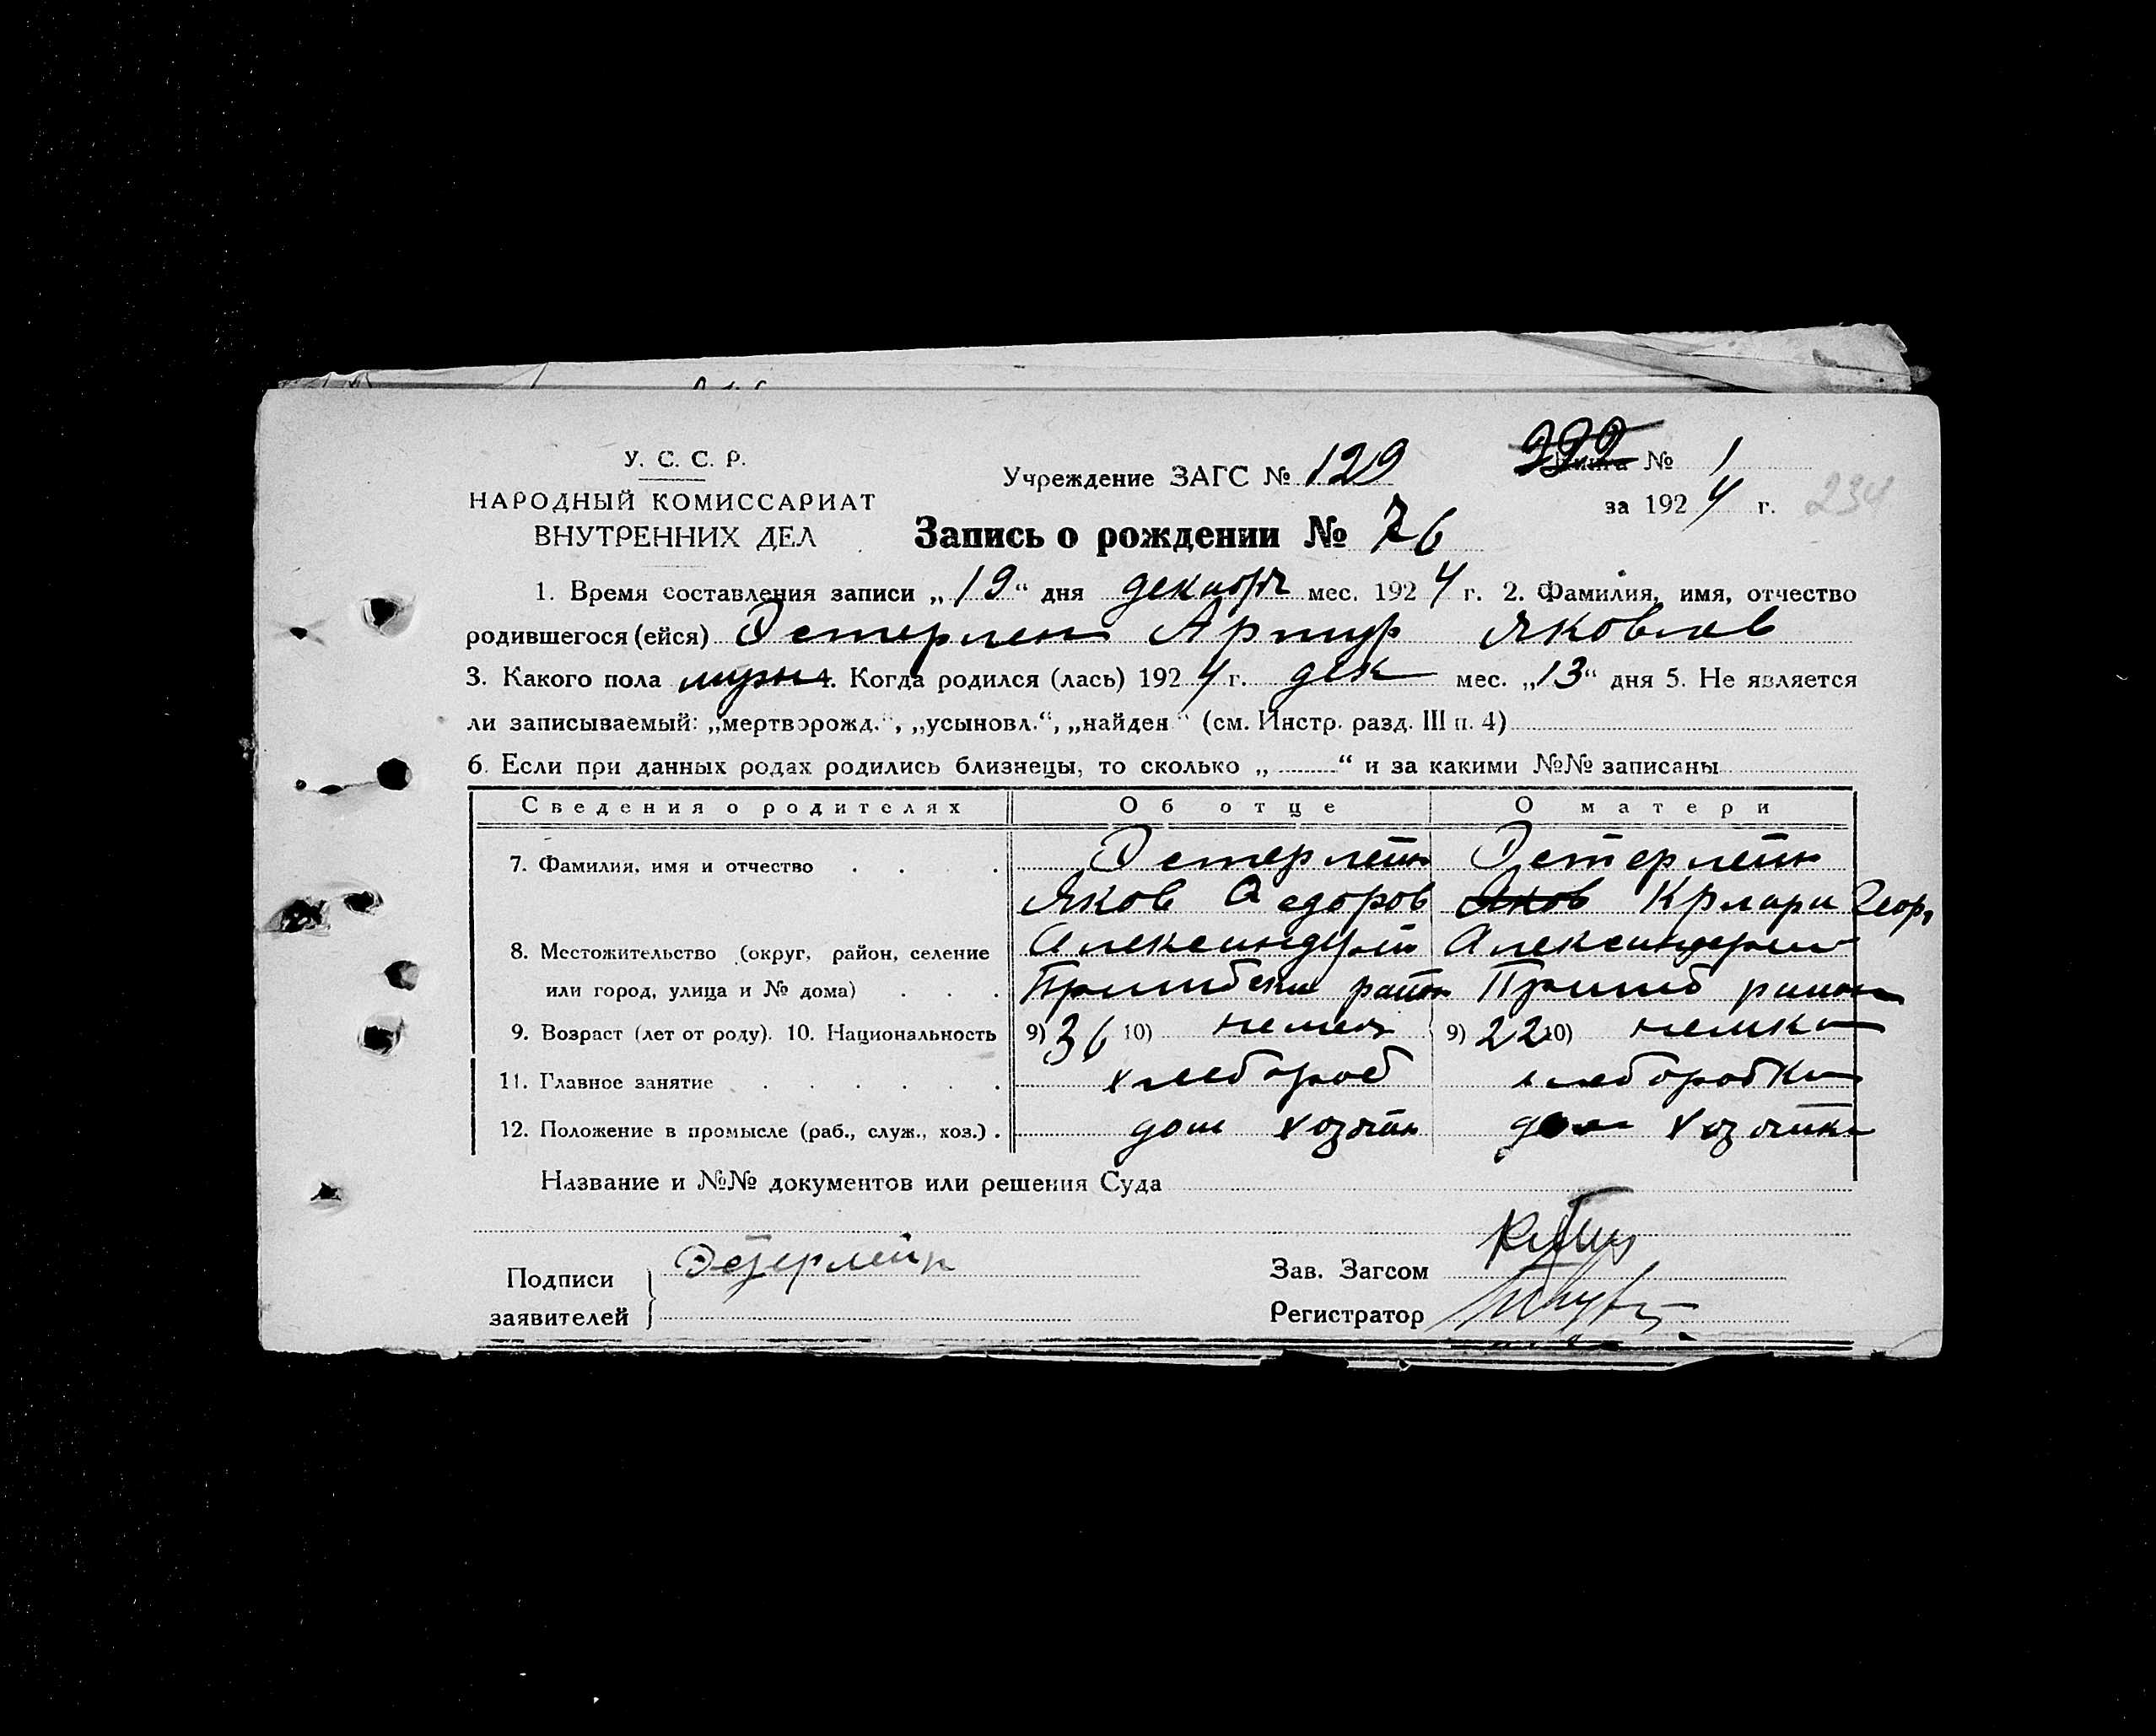 У. С. С. Р.
НАРОДНЫЙ КОМИССАРИАТ
ВНУТРЕННИХ ДЕЛ
Учреждение ЗАГС № 129
Книга № 1
за 1924 г. 234
Запись о рождении № 76
1. Время составления записи „19“ дня декабря мес. 1924 г. 2. Фамилия, имя, отчество
родившегося (ейся) Эстерлен Артур Яковлев
3. Какого пола муж 4. Когда родился (лась) 1924 г. дек мес. „13“ дня 5. Не является
ли записываемый: „мертворожд.“, „усыновл.“, „найден“ (см. Инстр. разд. III п. 4)
6. Если при данных родах родились близнецы, то сколько „ “ и за какими №№ записаны
Сведения о родителях Об отце О матери
7. Фамилия, имя и отчество . . . . Эстерлейн Эстерлейн
Яков Федоров Яков Геор.
8. Местожительство (округ, район, селение Александрфельд
или город, улица и № дома) . . . Пришибский район Пришиб район
9. Возраст (лет от роду). 10. Национальность 9) 36 10) немец 9) 22 10) немка
11. Главное занятие . . . . . . хлебороб хлеборобка
12. Положение в промысле (раб., служ., хоз.) . дом хозяин дом хозяйка
Название и №№ документов или решения Суда
Подписи заявителей } Эстерлейн
Зав. Загсом
Регистратор